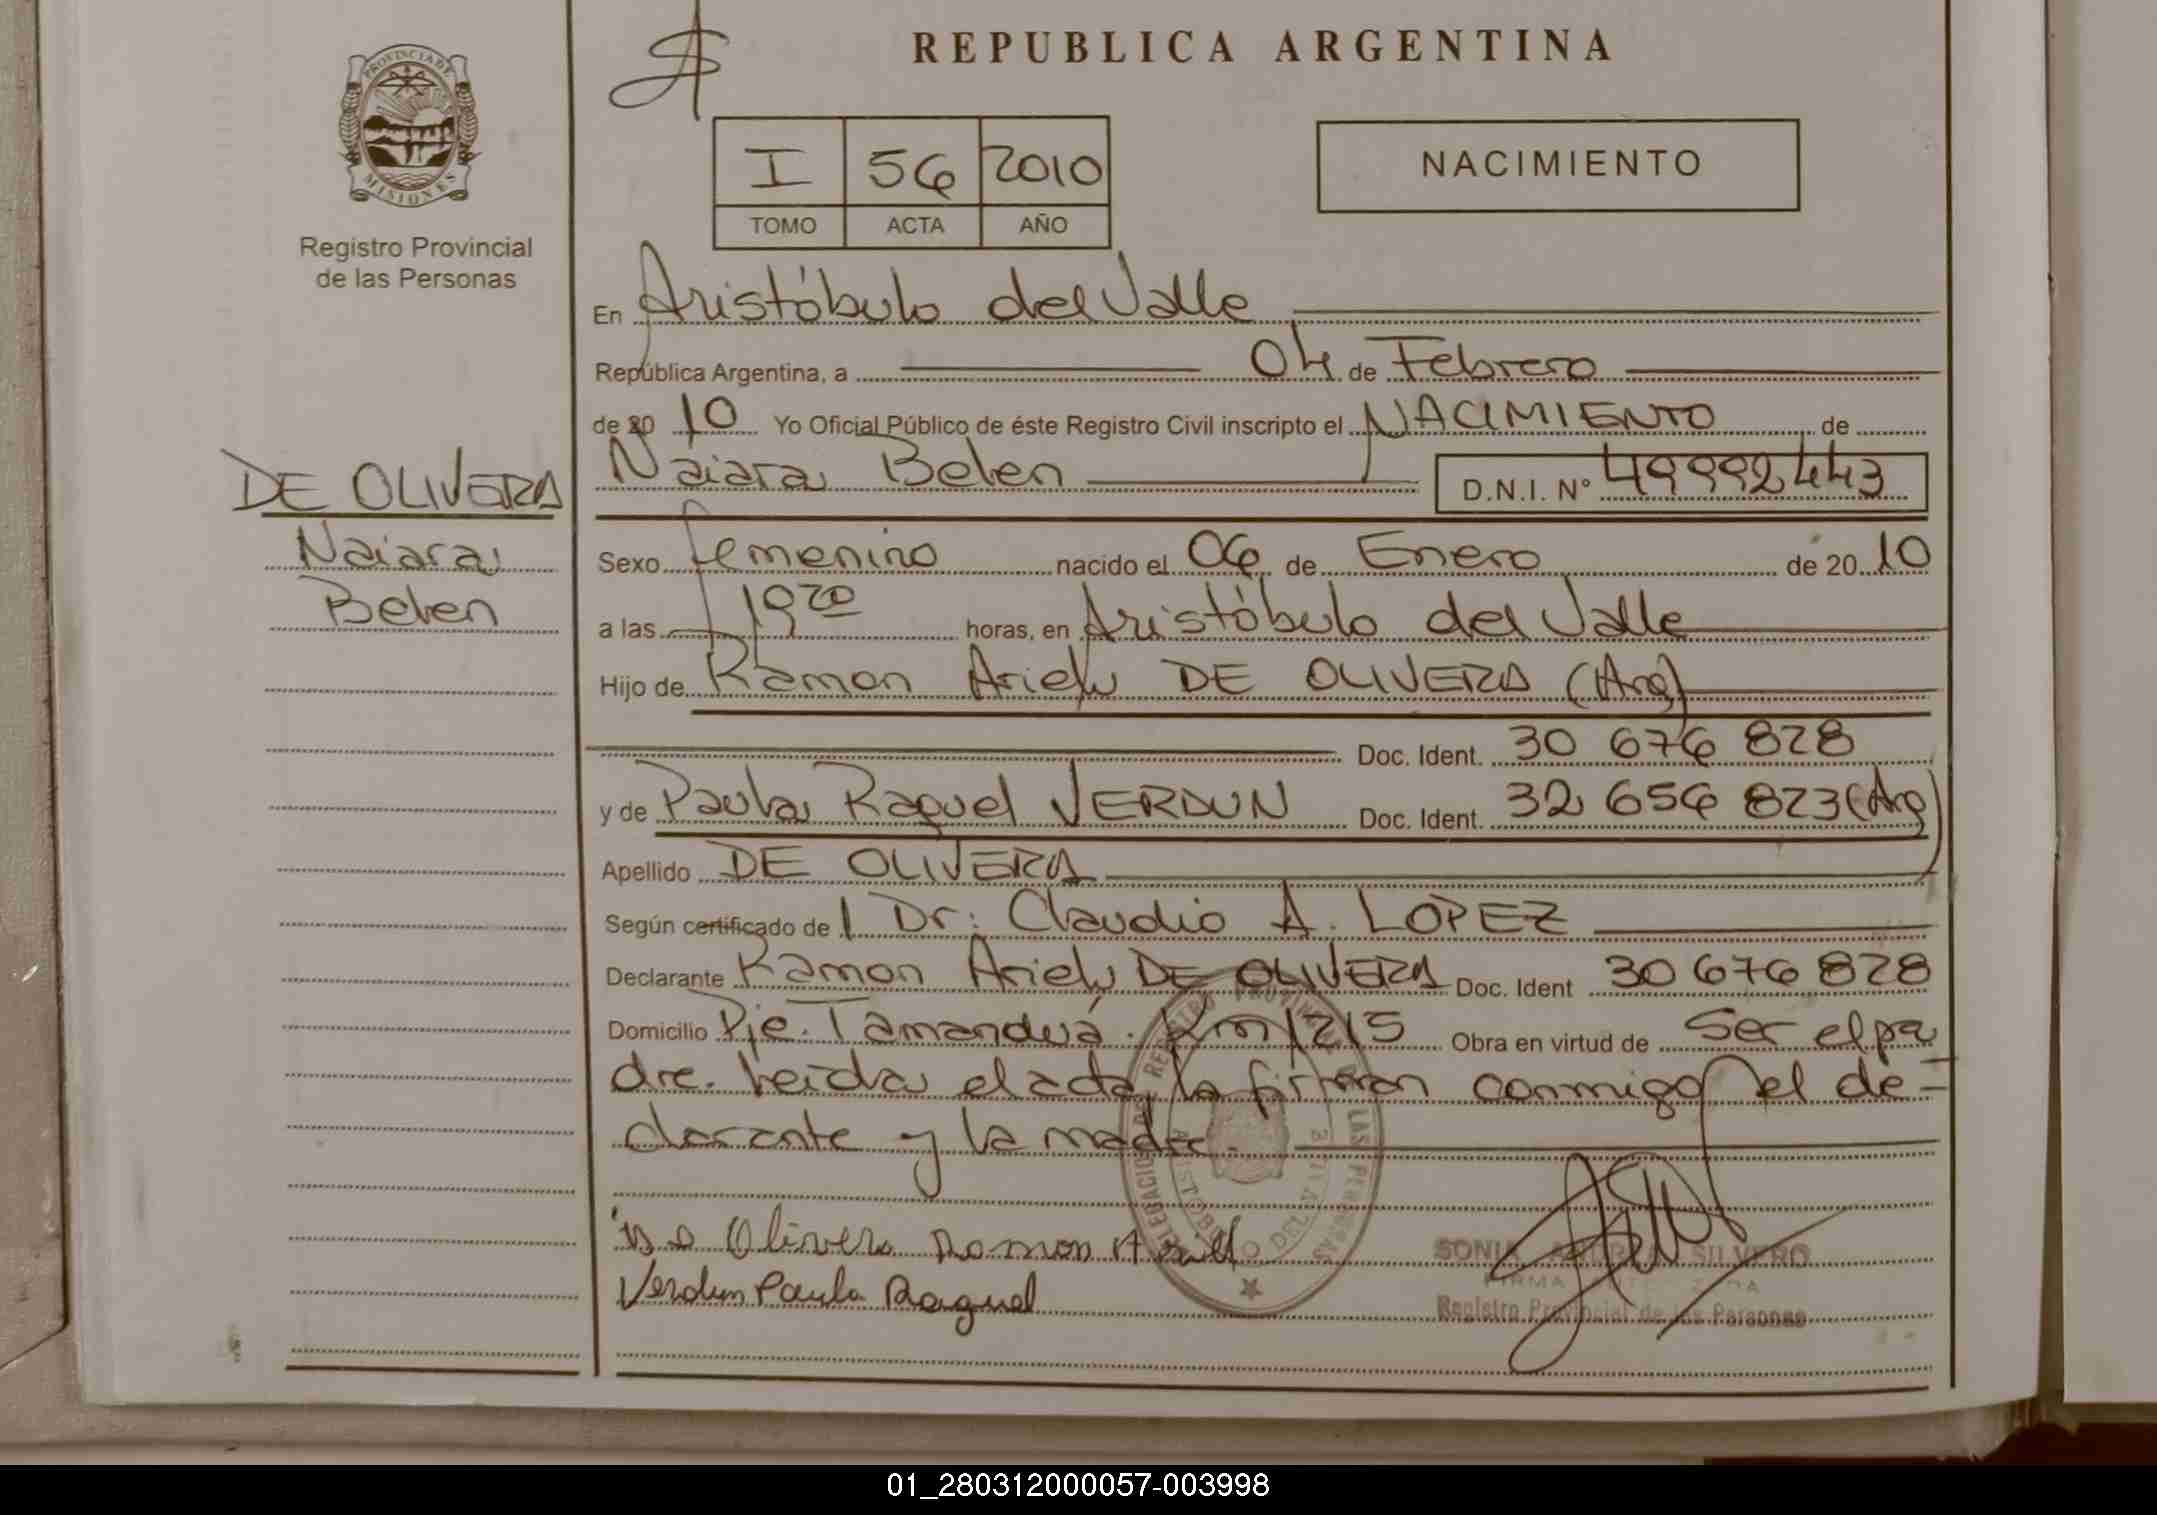 REPUBLICA ARGENTINA
PROVINCIA DE
MISIONES
Registro Provincial
de las Personas
I 56 2010
TOMO ACTA AÑO
NACIMIENTO
En Aristóbulo del Valle
República Argentina, a 04 de Febrero
de 2010 Yo Oficial Público de éste Registro Civil inscripto el NACIMIENTO de
Naiara Belen D.N.I. Nº 49992443
DE OLIVERA
Naiara
Belen
Sexo femenino nacido el 06 de Enero de 2010
a las 19 20 horas, en Aristóbulo del Valle
Hijo de Ramon Ariel DE OLIVERA (Arg)
Doc. Ident. 30 676 828
y de Paula Raquel VERDUN Doc. Ident. 32 656 823 (Arg)
Apellido DE OLIVERA
Según certificado de l Dr: Claudio A. LOPEZ
Declarante Ramon Ariel DE OLIVERA Doc. Ident 30 676 828
Domicilio Pje. Tamanduá. Km 1215 Obra en virtud de Ser el pa
dre. Leida el acta, la firman conmigo el de-
clarante y la madre.
DELEGACION DE REGISTRO PROVINCIAL DE LAS PERSONAS
ARISTOBULO DEL VALLE
De Olivera Ramon
Verdun Paula Raquel
SONIA ANDREA SILVERO
FIRMA AUTORIZADA
Registro Provincial de las Personas
01_280312000057-003998